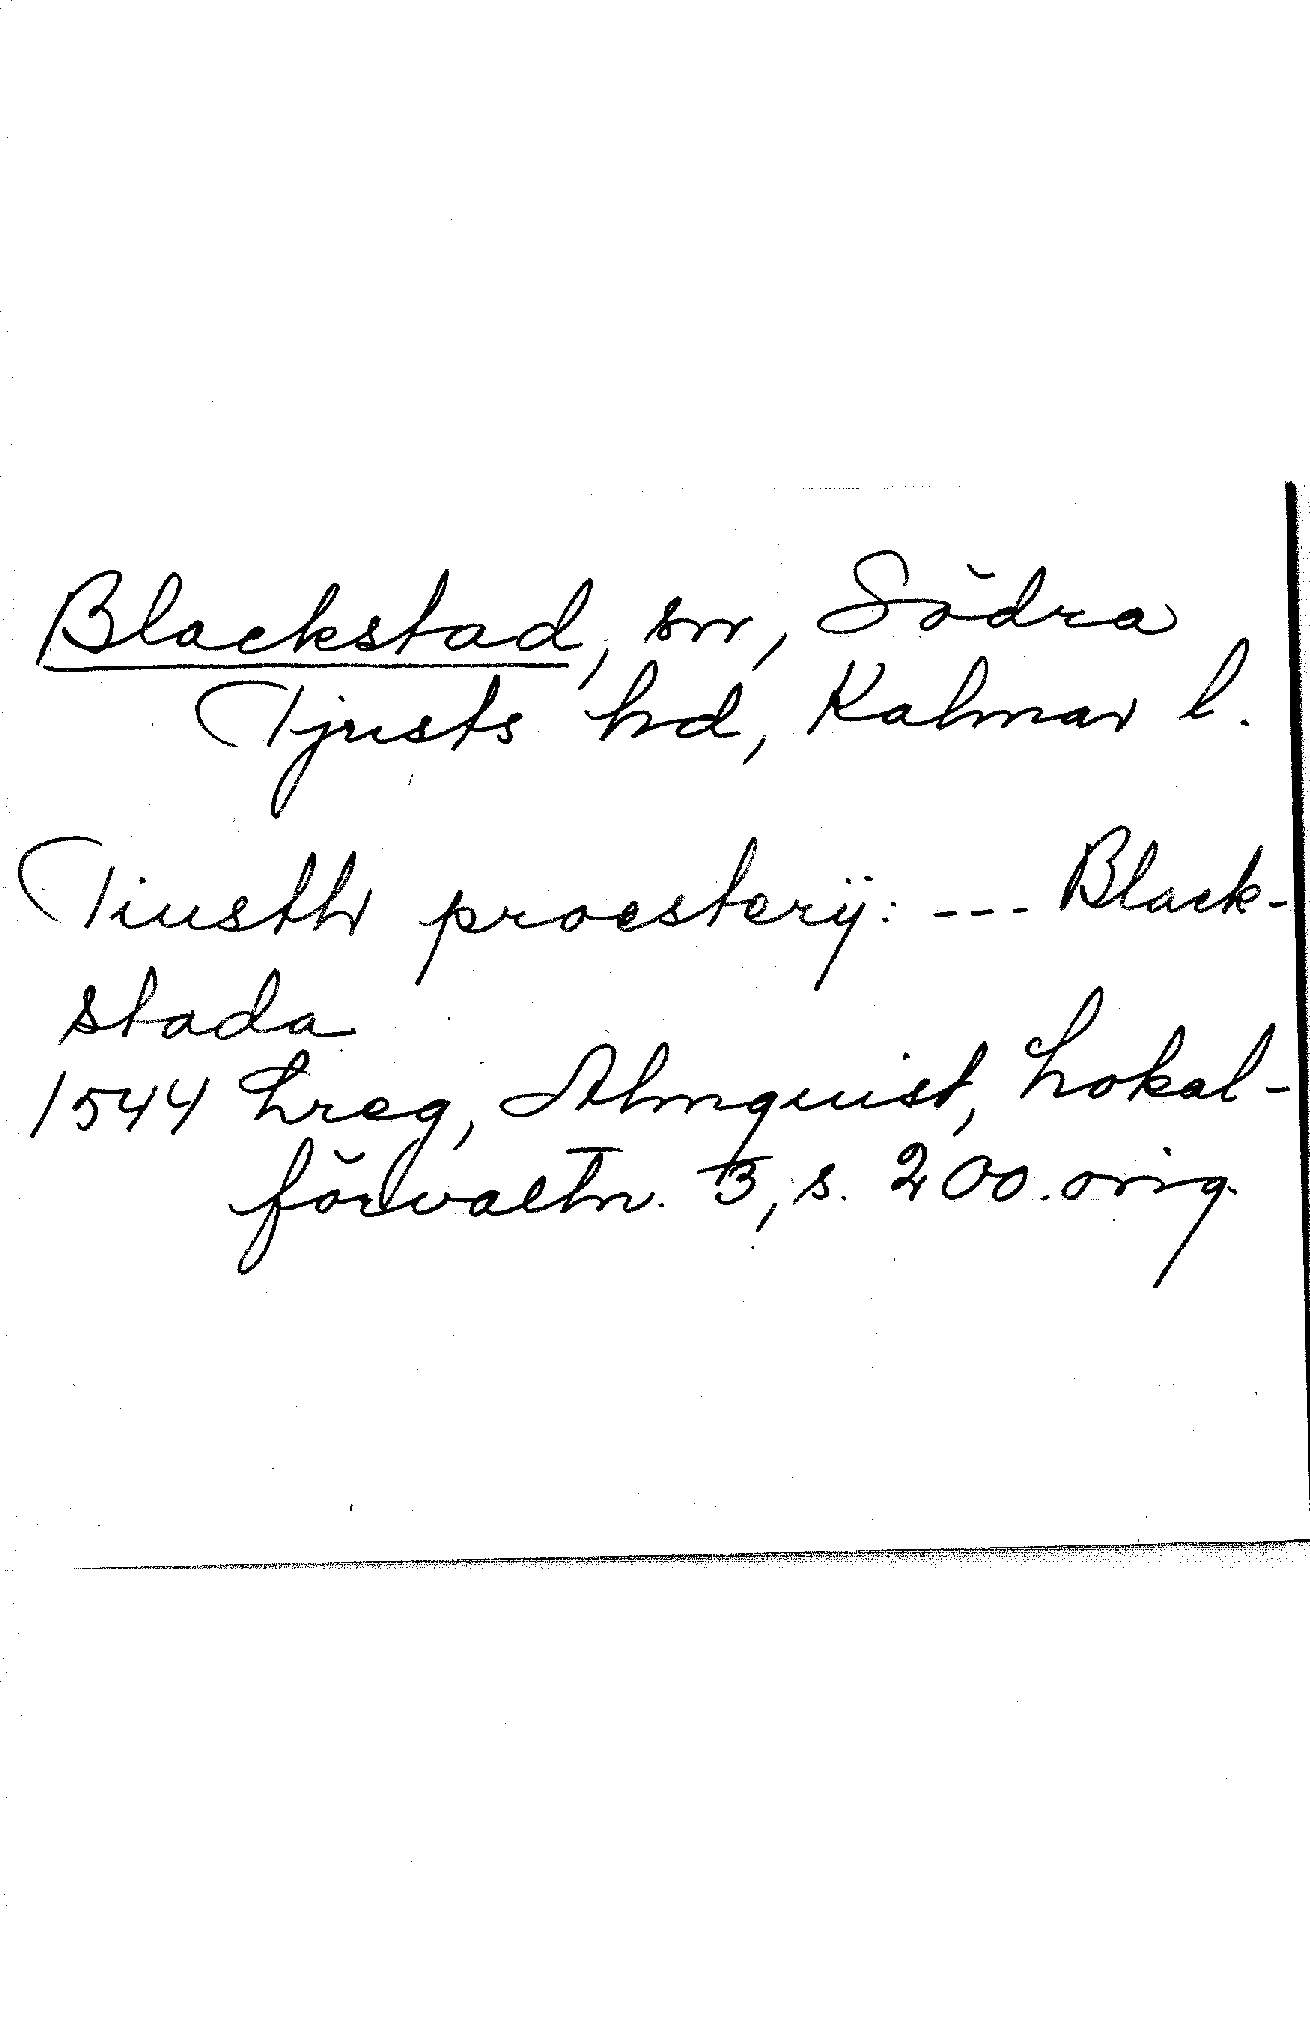 Blackstad, sn, Södra
Tjusts hd, Kalmar l.
Tiusth proesterij: --- Black-
stada
1544 Lreg, Almquist, Lokal-
förvaltn. 3, s. 200. orig.